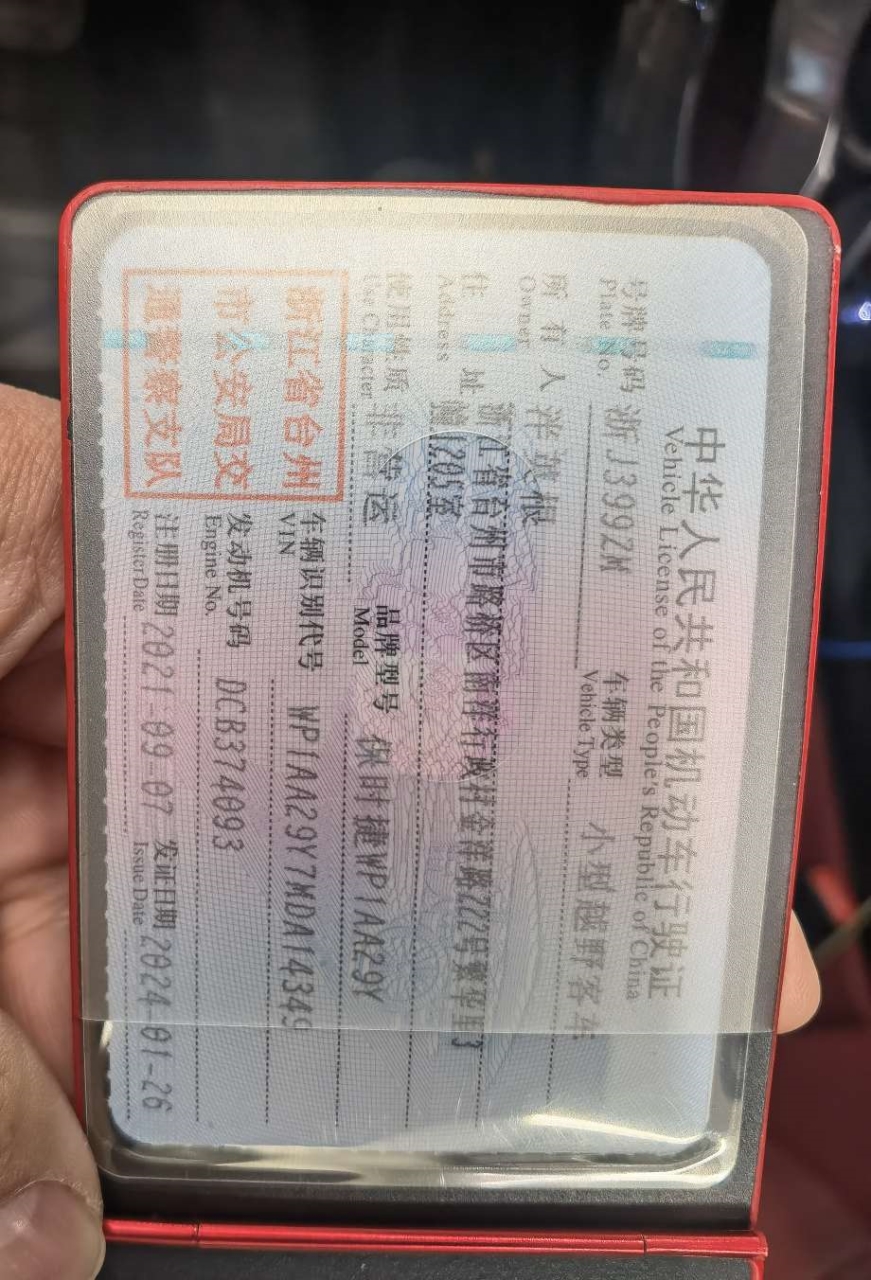 中华人民共和国机动车行驶证
Vehicle License of the People's Republic of China
号牌号码 浙J399ZM 车辆类型 小型越野客车
Plate No. Vehicle Type
所有人
Owner
住址 浙江省台州市路桥区南洋行政村金洋路222号繁华里3
Address 幢1205室
使用性质 非营运 品牌型号 保时捷WP1AA29Y
Use Character Model
浙江省台州
市公安局交
通警察支队
车辆识别代号 WP1AA29Y7MDA14349
VIN
发动机号码 DCB374093
Engine No.
注册日期 2021-09-07 发证日期 2024-01-26
Register Date Issue Date